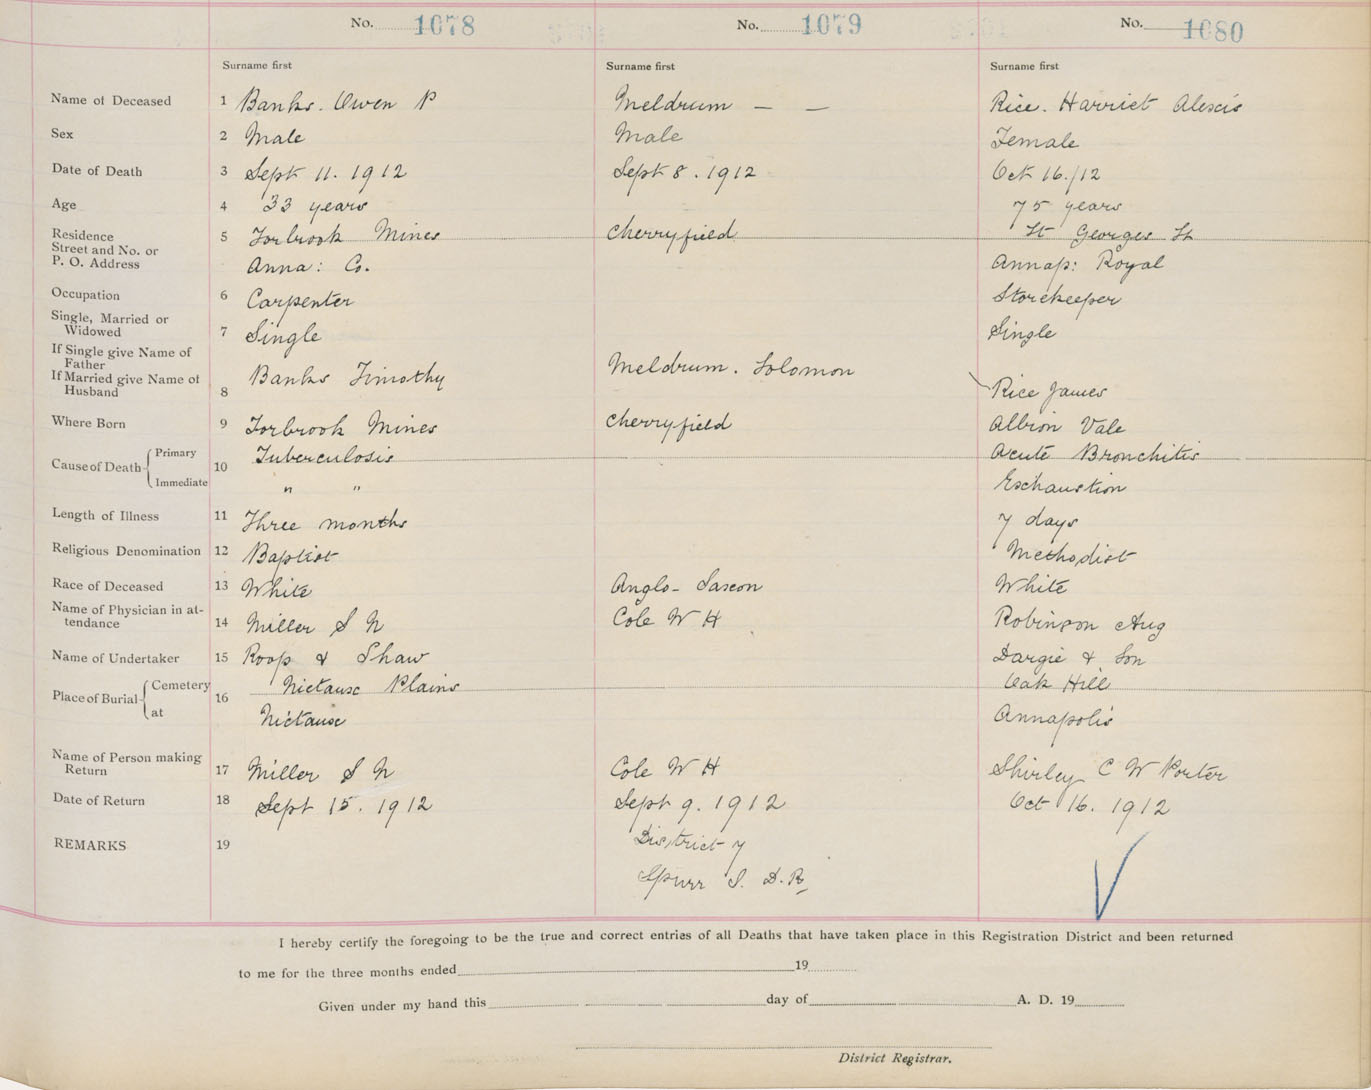 No. 1078 No. 1079 No. 1080
Surname first Surname first Surname first
Name of Deceased 1 Banks. Owen P Meldrum — — Rice. Harriet Alexis
Sex 2 Male Male Female
Date of Death 3 Sept 11. 1912 Sept 8. 1912 Oct 16./12
Age 4 33 years 75 years
Residence 5 Torbrook Mines Cherryfield St Georges St
Street and No. or
P. O. Address Anna: Co. Annap: Royal
Occupation 6 Carpenter Storekeeper
Single, Married or
Widowed 7 Single Single
If Single give Name of
Father Meldrum. Solomon
If Married give Name of Banks Timothy
Husband 8 Rice James
Where Born 9 Torbrook Mines Cherryfield Albion Vale
Cause of Death Primary 10 Tuberculosis Acute Bronchitis
Immediate " " Exhaustion
Length of Illness 11 Three months 7 days
Religious Denomination 12 Baptist Methodist
Race of Deceased 13 White Anglo-Saxon White
Name of Physician in at-
tendance 14 Miller S N Cole W H Robinson Aug
Name of Undertaker 15 Roop & Shaw Dargie & Son
Place of Burial Cemetery 16 Nictaux Plains Oak Hill
at Nictaux Annapolis
Name of Person making
Return 17 Miller S N Cole W H Shirley C W Porter
Date of Return 18 Sept 15. 1912 Sept 9. 1912 Oct 16. 1912
REMARKS 19 District 7
Spurr S. D.R,
I hereby certify the foregoing to be the true and correct entries of all Deaths that have taken place in this Registration District and been returned
to me for the three months ended 19
Given under my hand this day of A. D. 19
District Registrar.